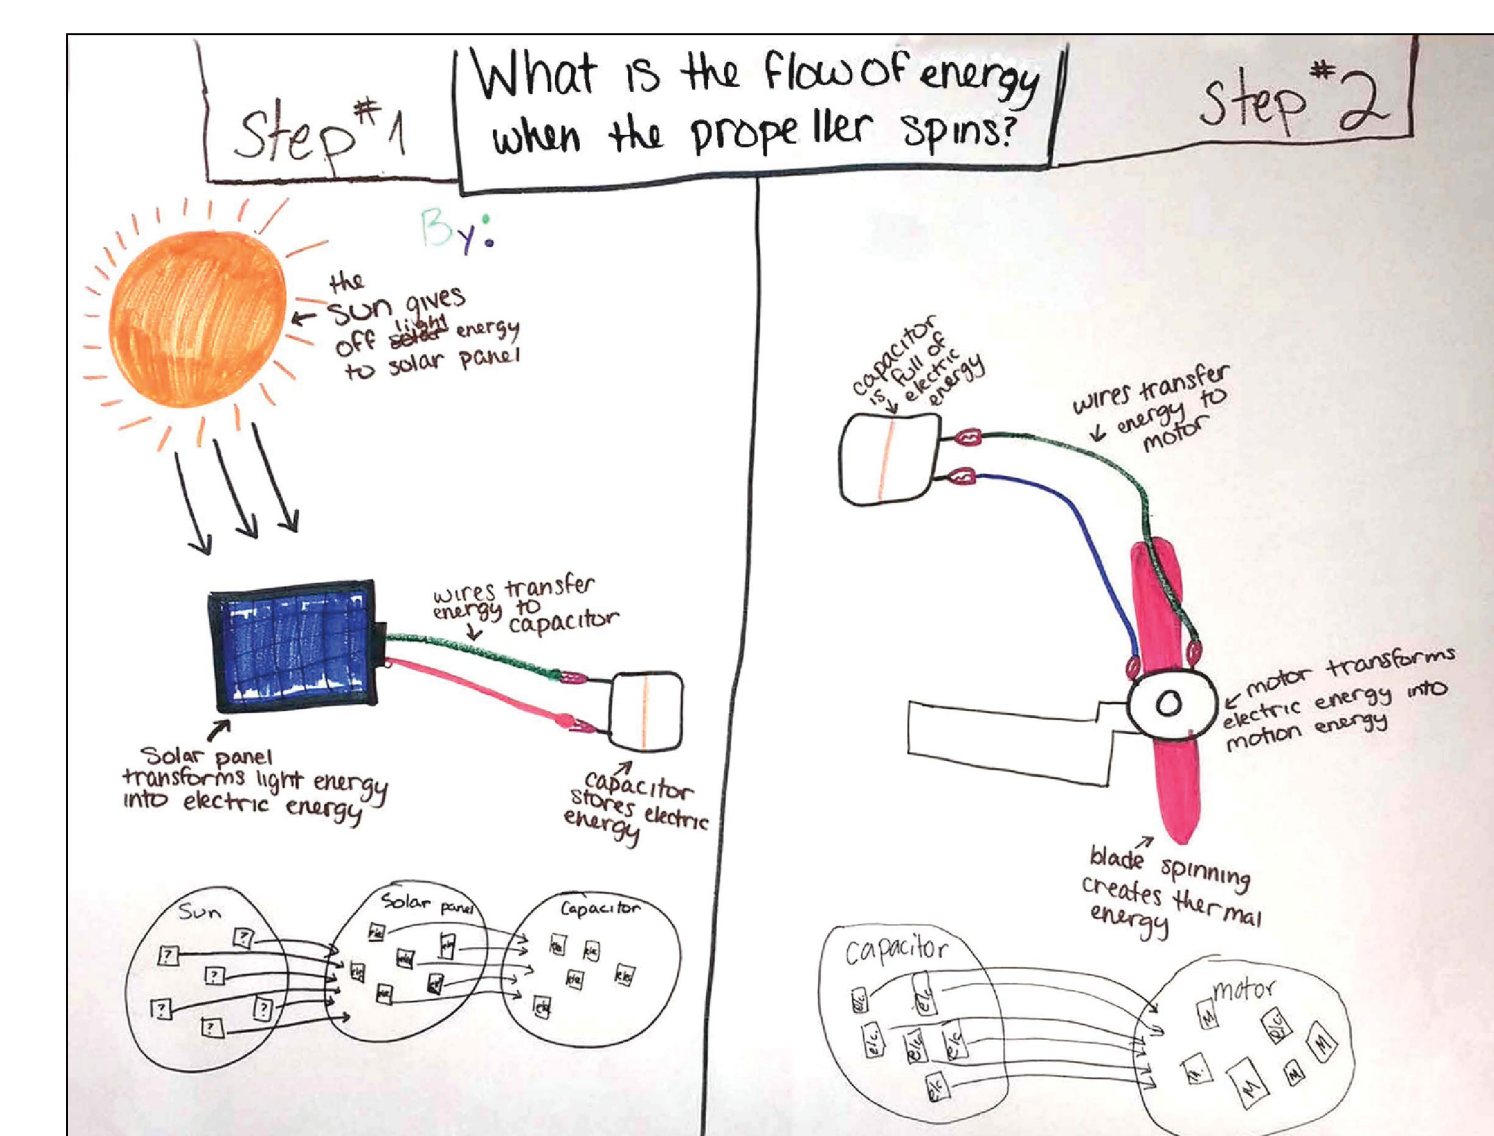 Step #1
What is the flow of energy
when the propeller spins?
Step #2
By:
the
sun gives
off light energy
to solar panel
wires transfer
energy to
capacitor
Solar panel
transforms light energy
into electric energy
capacitor
stores electric
energy
Sun
?
?
?
?
?
?
Solar panel
ele
ele
ele
ele
ele
ele
Capacitor
ele
ele
ele
ele
ele
capacitor
is full of
electric
energy
wires transfer
energy to
motor
motor transforms
electric energy into
motion energy
blade spinning
creates thermal
energy
capacitor
elc
elc
elc
elc
elc
elc
motor
elc
M
M
M